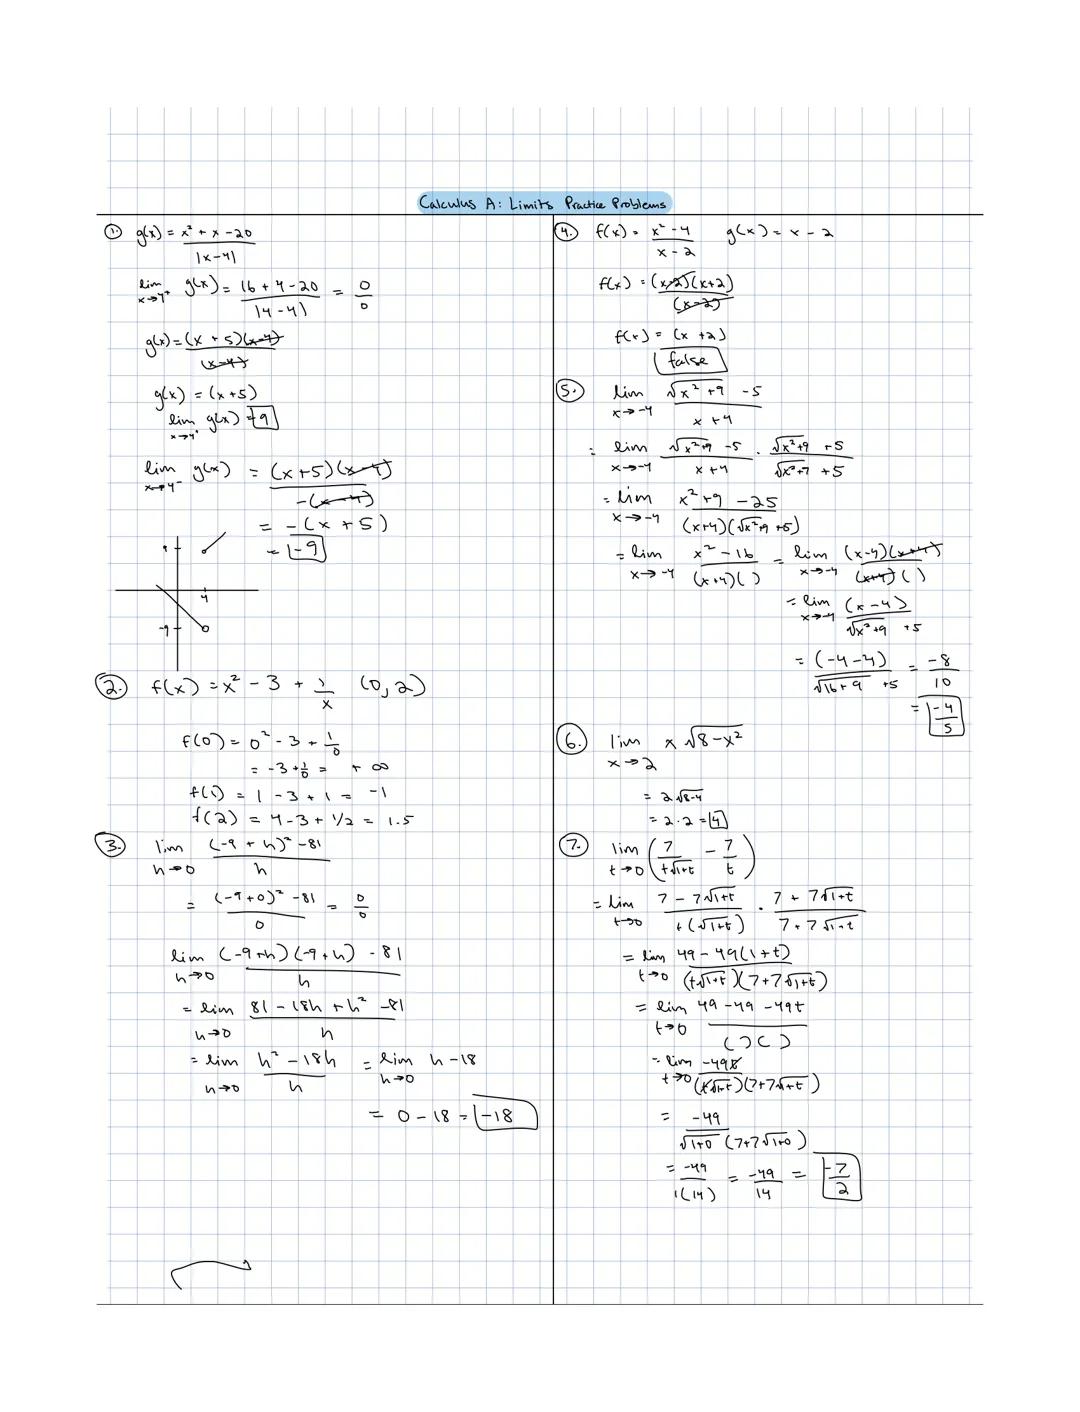 Calculus A: Limits Practice Problems
1. g(x) = x² + x - 20 / |x-4|
lim x→4⁺ g(x) = 16 + 4 - 20 / |4-4| = 0/0
g(x) = (x + 5)(x-4) / (x-4)
g(x) = (x+5)
lim x→4⁺ g(x) = 9
lim x→4⁻ g(x) = (x+5)(x-4) / -(x-4)
= -(x + 5)
= -9
9
4
-9
2. f(x) = x² - 3 + 1/x (0, 2)
f(0) = 0² - 3 + 1/0
= -3 + 1/0 = + ∞
f(1) = 1 - 3 + 1 = -1
f(2) = 4 - 3 + 1/2 = 1.5
3. lim h→0 (-9 + h)² - 81 / h
= (-9+0)² - 81 / 0 = 0/0
lim h→0 (-9+h)(-9+h) - 81 / h
= lim h→0 81 - 18h + h² - 81 / h
= lim h→0 h² - 18h / h = lim h→0 h - 18
= 0 - 18 = -18
4. f(x) = x² - 4 / x - 2 g(x) = x - 2
f(x) = (x-2)(x+2) / (x-2)
f(x) = (x + 2)
false
5. lim x→-4 √x² + 9 - 5 / x + 4
= lim x→-4 √x²+9 - 5 / x+4 · √x²+9 + 5 / √x²+9 + 5
= lim x→-4 x² + 9 - 25 / (x+4)(√x²+9 + 5)
= lim x→-4 x² - 16 / (x+4)( ) = lim x→-4 (x-4)(x+4) / (x+4)( )
= lim x→-4 (x-4) / √x²+9 + 5
= (-4-4) / √16+9 + 5 = -8/10
= -4/5
6. lim x→2 x √8-x²
= 2√8-4
= 2·2 = 4
7. lim t→0 (7 / t√1+t - 7/t)
= lim t→0 7 - 7√1+t / t(√1+t) · 7 + 7√1+t / 7 + 7√1+t
= lim t→0 49 - 49(1+t) / (t√1+t)(7+7√1+t)
= lim t→0 49 - 49 - 49t / ( )( )
= lim t→0 -49t / (t√1+t)(7+7√1+t)
= -49 / √1+0 (7+7√1+0)
= -49 / 1(14) = -49/14 = -7/2